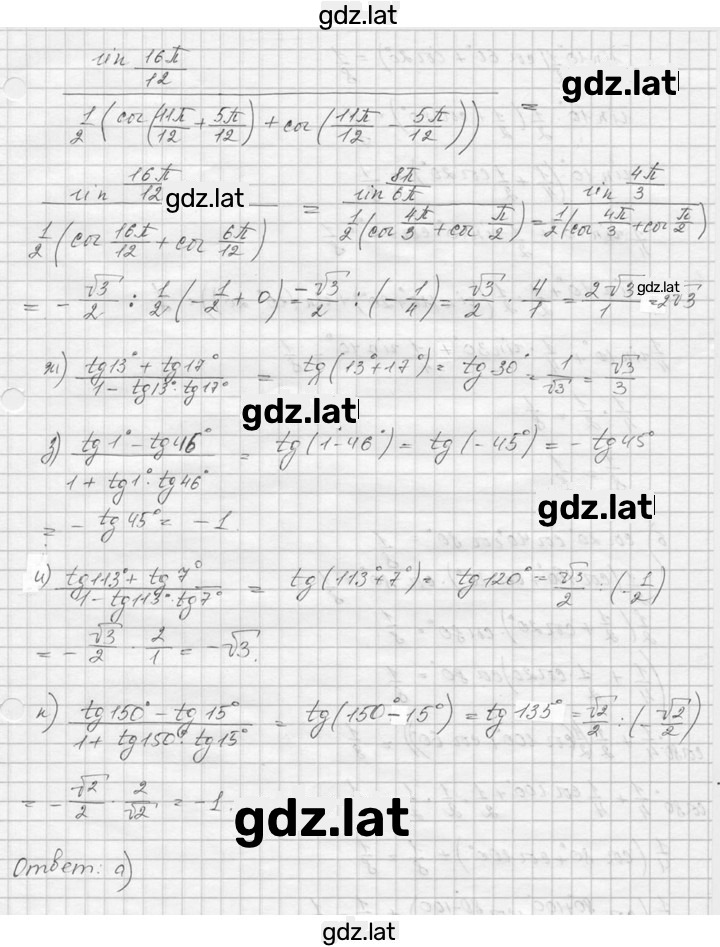 gdz.lat
sin 16π/12
gdz.lat
1/2 (cos(11π/12 + 5π/12) + cos(11π/12 - 5π/12)) =
sin 16π/12 / 1/2 (cos 16π/12 + cos 6π/12) = sin 8π/6π / 1/2 (cos 4π/3 + cos π/2) = sin 4π/3 / 1/2 (cos 4π/3 + cos π/2)
gdz.lat
= - √3/2 : 1/2 (- 1/2 + 0) = -√3/2 : (- 1/4) = √3/2 · 4/1 = 2√3/1 = 2√3
gdz.lat
ж) tg13° + tg17° / 1 - tg13° · tg17° = tg(13° + 17°) = tg 30° = 1/√3 = √3/3
gdz.lat
з) tg1° - tg46° / 1 + tg1° · tg46° = tg(1 - 46°) = tg(-45°) = - tg45°
gdz.lat
= - tg45° = -1.
и) tg113° + tg7° / 1 - tg113° · tg7° = tg(113° + 7°) = tg120° = √3/2 : (- 1/2)
= - √3/2 · 2/1 = -√3.
к) tg150° - tg15° / 1 + tg150° · tg15° = tg(150° - 15°) = tg135° = √2/2 : (- √2/2)
= - √2/2 · 2/√2 = -1.
gdz.lat
Ответ: а)
gdz.lat